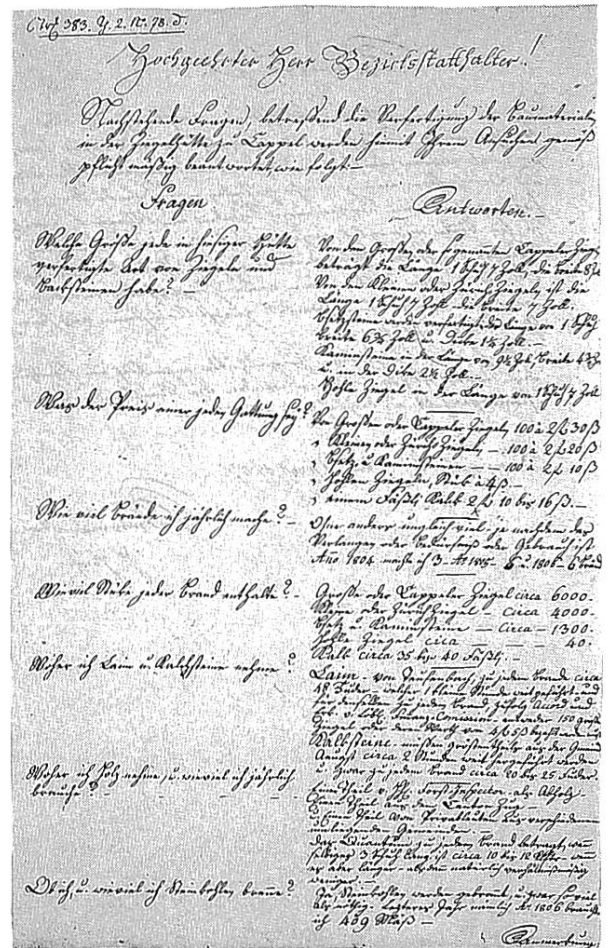 Hochgeehrter Herr Bezirksstatthalter!
Nachstehende Fragen, betreffend die Verfertigung der Baumaterialien
in der Ziegelhütte zu Cappel werden hiemit Ihrem Ansuchen gemäß
pflichtmäßig beantwortet, wie folgt.—
Fragen
Antworten.—
Welche Größe jede in hiesiger Hütte
verfertigte Art von Ziegeln und
Bachsteinen habe? —
Von den Großen oder sogenannten Cappeler Ziegel
beträgt die Länge 1 Schuh 7 Zoll, die breite 8 Zoll
Von den Kleinen oder Zürich Ziegeln ist die
Länge 1 Schuh 7 Zoll die breite 7 Zoll.
Bsetzsteine werden verfertigt die Länge von 1 Schuh
breite 6¾ Zoll u. Dike 1¾ Zoll.
Kaminsteine in der Länge von 9½ Zoll, breite 4¾
u. in der Dike 2½ Zoll.
Hohle Ziegel in der Länge von 1 Schuh 7 Zoll
Was der Preis einer jeden Gattung sey?
Von Großen oder Cappeler Ziegeln 100 à 2 fl 30 ß
" Kleinen oder Zürich Ziegeln — 100 à 2 fl 20 ß
" Bsetz u. Kaminsteinen — — 100 à 2 fl 10 ß
" Hohlen Ziegeln, Stük à 4 ß.—
" einem Fäßli Kalk 2 fl 10 bis 16 ß.—
Wie viel Brände ich jährlich mache? —
Ohne anders ungleich viel, je nachdem das
Verlangen oder Bedürfniß oder Gebrauch ist
Anno 1804 machte ich 3 — Ao 1805 — 5 u. 1806 — 6 Bränd
Wieviel Stüke jeder Brand enthalte? —
Große oder Cappeler Ziegel circa 6000.
Kleine oder Zürich Ziegel — circa 4000.
Bsetz u. Kaminsteine — circa — 1300.
Hohle Ziegel circa — — 40.
Kalk circa 35 bis 40 Fäßli.—
Woher ich Laim u. Kalchsteine nehme?
Laim — von Teufenbach, zu jedem Brande circa
48 Fuder — welcher 1 kleine Stunde weit geführt und
für denselben zu jedem Brand, zufolg Accord und
v. Löbl. Finanz-Comission — entweder 150 große
Ziegel oder deren Werth von 4 fl 5 ß bezalt werden
Kalksteine — müßen größtentheils aus der Gmeind
Aeugst circa 2 Stunden weit hergeführt werden
u. zwar zu jedem Brand circa 20 bis 25 Fuder.
Woher ich Holz nehme, u. wieviel ich jährlich
brauche?
Einen Theil v. Forst-Inspector — als Abholz —
Einen Theil aus dem Canton Zug —
u. Einen Theil von Privatleuten aus verschiedenen
umliegenden Gemeinden —
Das Quantum zu jedem Brand beträgt, wenn
selbiges 3 Schuh lang ist circa 10 bis 12 Klafter — wenn
es aber länger — als dann natürlich verhältnißmäßig
weniger.
Ob ich, u. wieviel ich Steinkohlen brenne?
Ja, Steinkohlen werden gebrennt, u. zwar soviel
als nöthig. Leztverwichenes Jahr nämlich Ao 1806 brauchte
ich 409 Mäß —
Anmerkung.